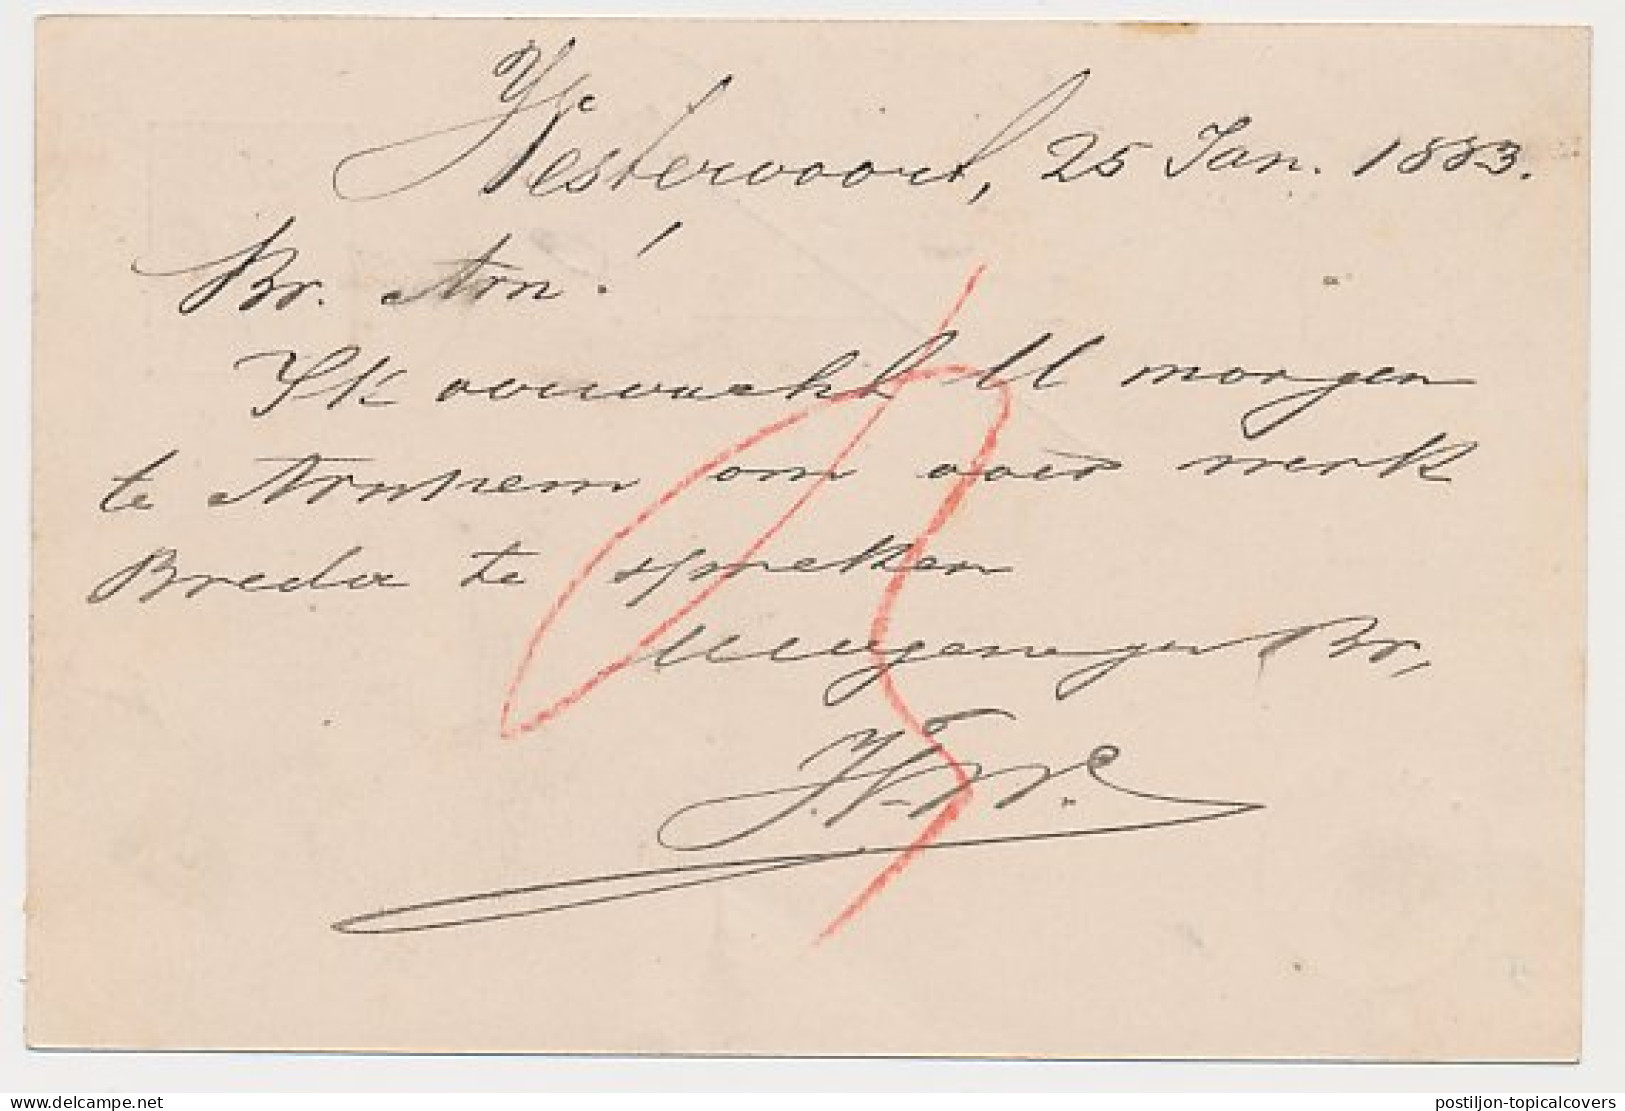 Westervoort, 25 Jan. 1883.
Br. Arn!
Ik verwacht U morgen
te Arnhem om over werk
Breda te spreken
Uw genegen Br,
postiljon-topicalcovers